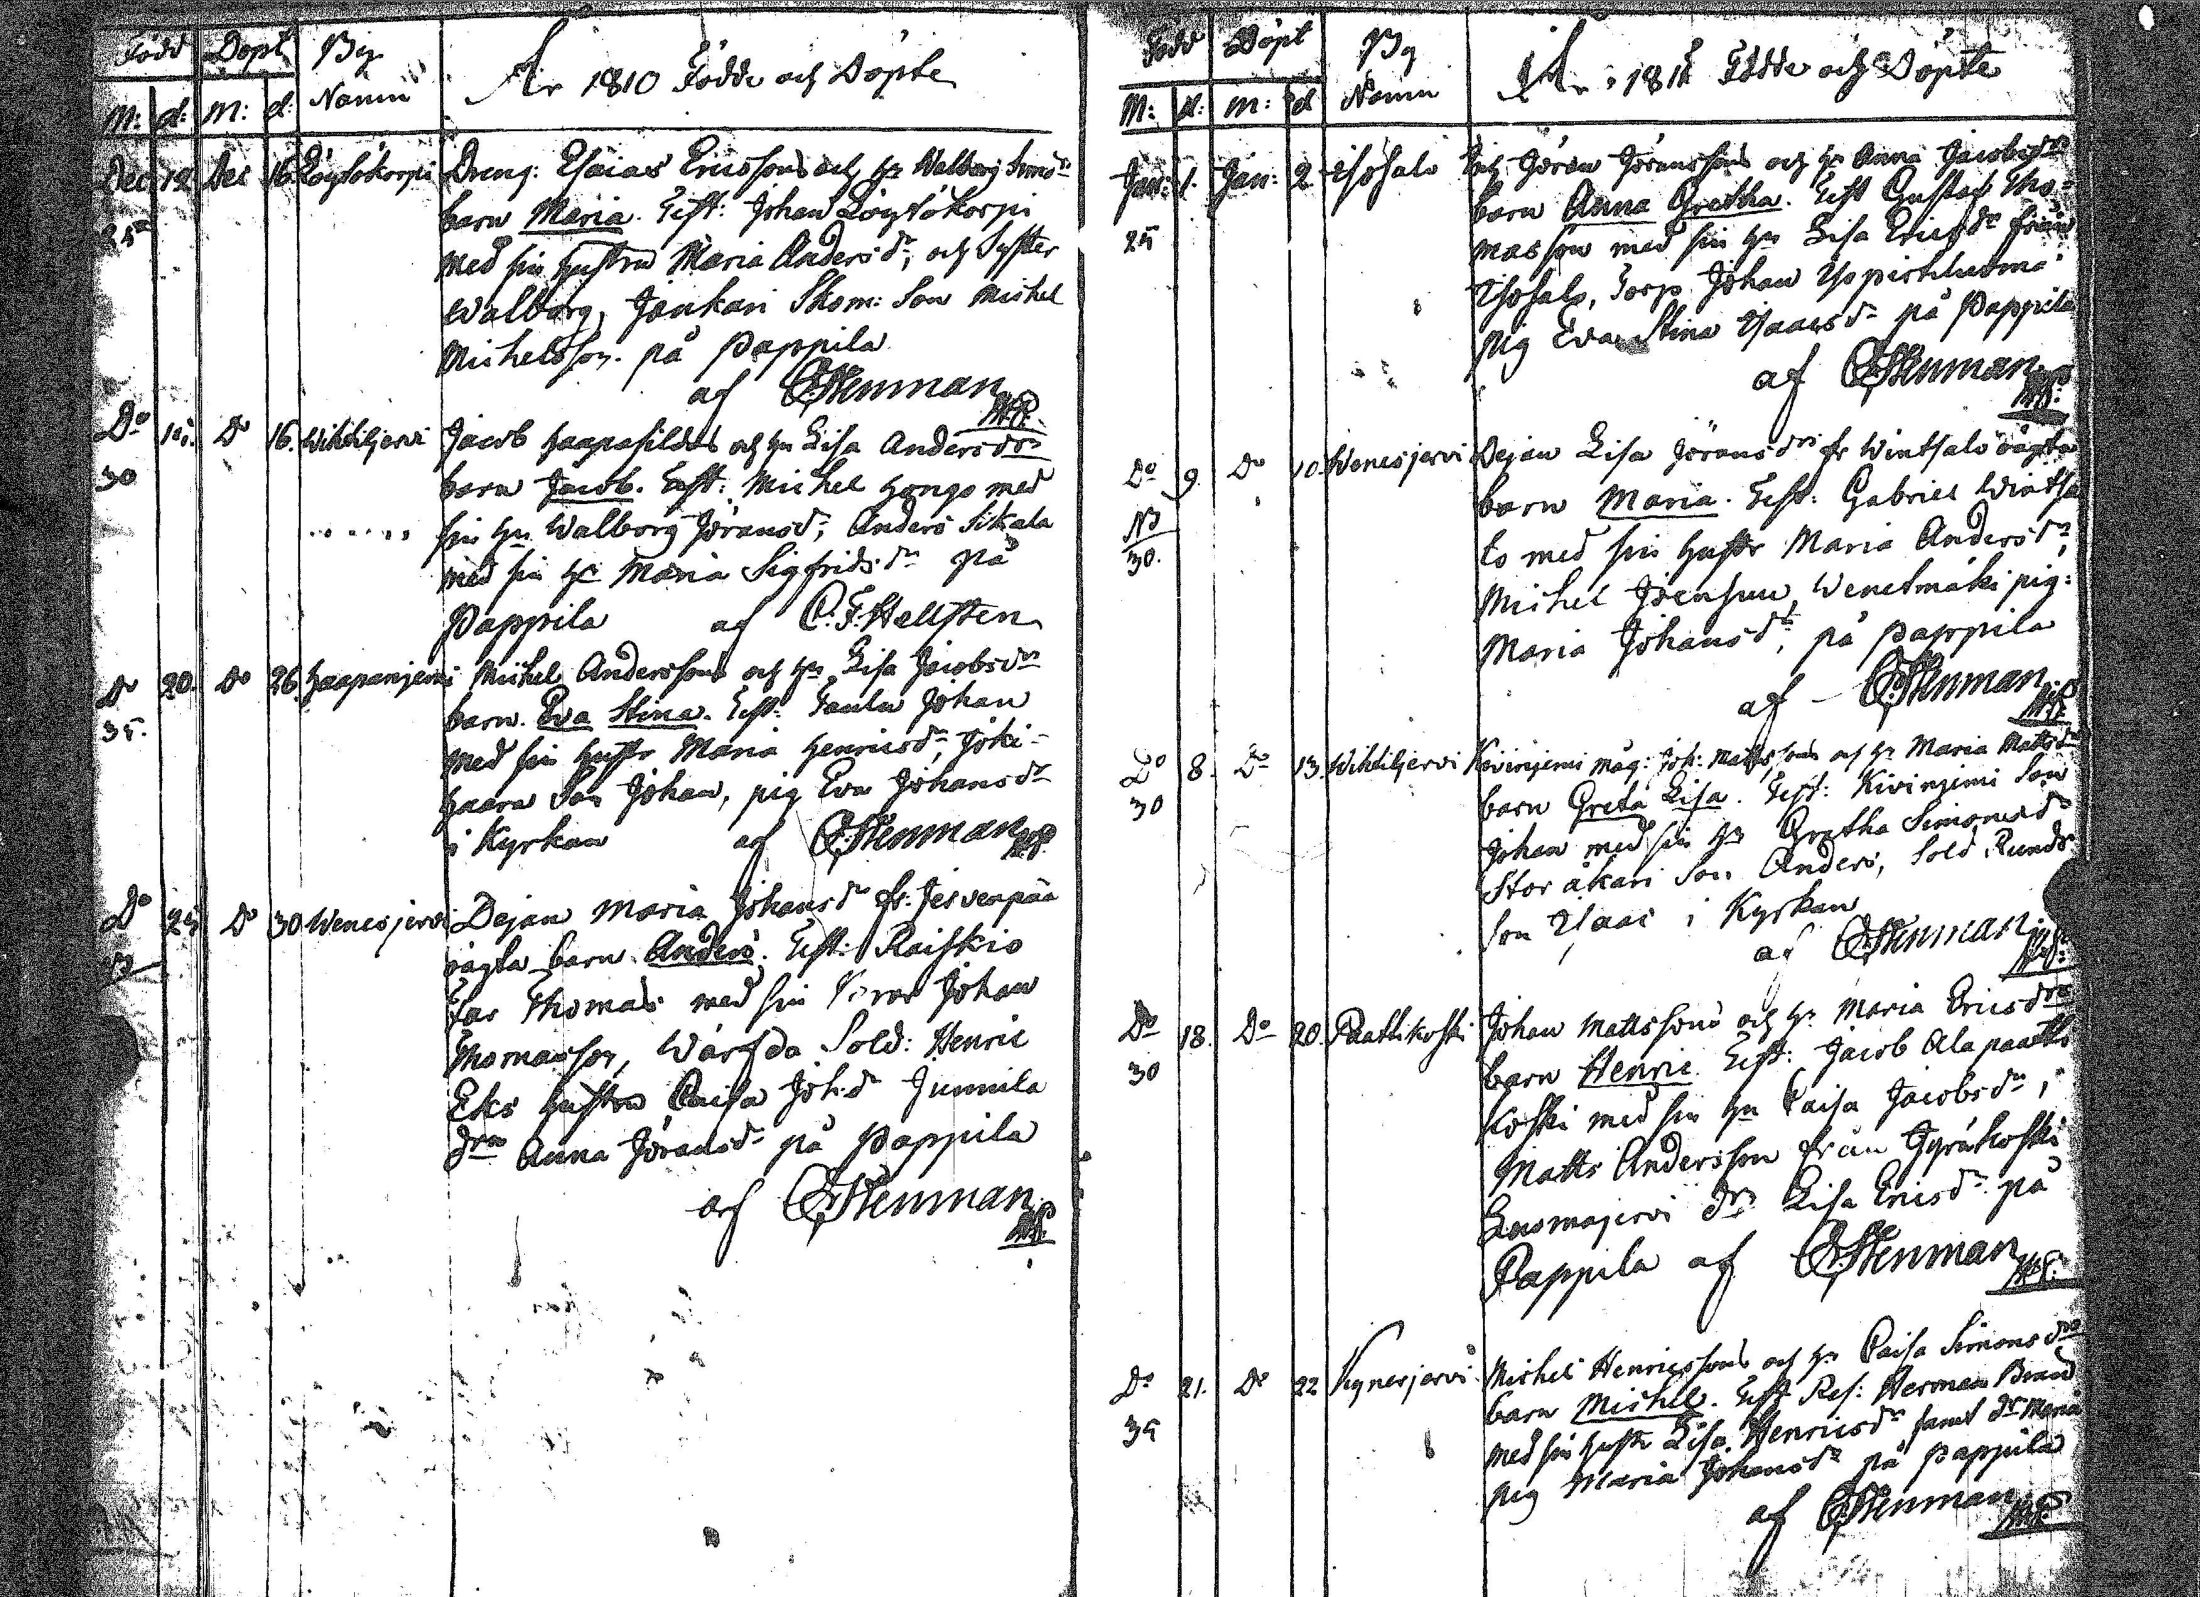 Född Döpt By
Namn
M: d: M: d:
År 1810 Födde och Döpte
Dec 12 Dec 16 Löytökorpi Dreng: Esaias Ericssons och hu Walborg Simsdr
25 barn Maria. Test: Johan Löytökorpi
med sin hustru Maria Andersdr, och Syster
Walborg, Jonkari Skom: Son Michel
Michelsson. på Pappila
af CStenman
Do 15. Do 16. Wihtiljervi Jacob Haapasildas och hu Lisa Andersdrs
30 barn Jacob. Test: Michel Hongo med
sin hu Walborg Jöransdr, Anders Sikala
med sin hu Maria Sigfridsdr på
Pappila af C. F. Hellsten
Do 20. Do 26 Haapanjemi Michel Anderssons och hu Lisa Jacobsdrs
35. barn. Eva Stina. Test: Johan
med sin hustr Maria Henricsdr, Joki-
haara Son Johan, pig Eva Johansdr
i Kyrkan af CStenman
Do 25 Do 30 Wenesjervi Dejan Maria Johansdr fr: Jervenpää
oägta barn Anders. Test: Raiskio
Thomas med sin Johan
Thomasson, Sold: Henric
Eks hustru Caisa Joh:dr Junnila
drn Anna Jöransdr på Pappila
af CStenman
Född Döpt By
Namn
M: d: M: d
År 1811 Födde och Döpte
Jan: 1. Jan: 2 Isosalo Inh Jöran Jöranssons och hu Anna Jacobsdrs
25 barn Anna Gretha. Test Gustaf Tho-
masson med sin hu Lisa Ericsdr från
Isosalo, Torp Johan
pig Eva Stina Isaacsdr på Pappila
af CStenman
Do 9. Do 10. Wenesjervi Dejan Lisa Jöransdrs fr Wintsalo oägta
NB barn Maria. Test: Gabriel Wintsa
30. lo med sin hustr Maria Andersdr,
Michel Joensuu, Wenetmäki pig:
Maria Johansdr, på Pappila
af CStenman
Do 8. Do 13 Wihtiljervi Kivinjemi måg: Joh: Mattssons och hu Maria Mattsdr
30 barn Greta Lisa. Test: Kivinjemi Son
Johan med sin hu Gretha Simonsdr
Storåkari Son Anders, Sold Runds
Son Isaac i Kyrkan
af CStenman
Do 18. Do 20. Paattikoski Johan Mattssons och hu Maria Ericsdrs
30 barn Henric. Test: Jacob Alapaatti
koski med sin hu Caisa Jacobsdr,
Matts Andersson från Jyräkoski
Lusmajervi dr Lisa Ericsdr på
Pappila af CStenman
Do 21. Do 22 Kynesjervi Michel Henricssons och hu Caisa Simonsdrs
35 barn Michel. Test Ref: Herman Brand
med sin hustr Lisa Henricsdr samt dr Maria
pig Maria Johansdr på Pappila
af CStenman